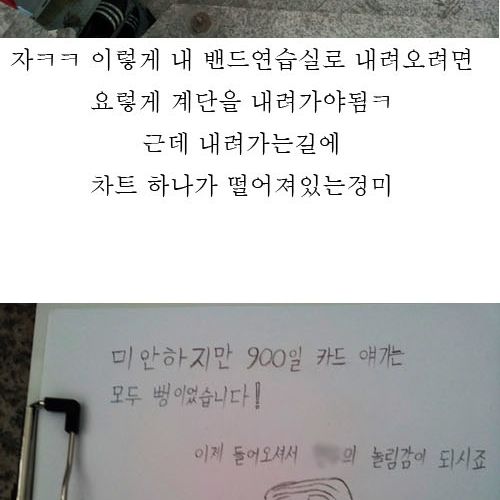 자ㅋㅋ 이렇게 내 밴드연습실로 내려오려면
요렇게 계단을 내려가야됨ㅋ
근데 내려가는길에
차트 하나가 떨어져있는겅미
미안하지만 900일 카드 얘기는
모두 뻥이었습니다!
이제 들어오셔서 의 놀림감이 되시죠